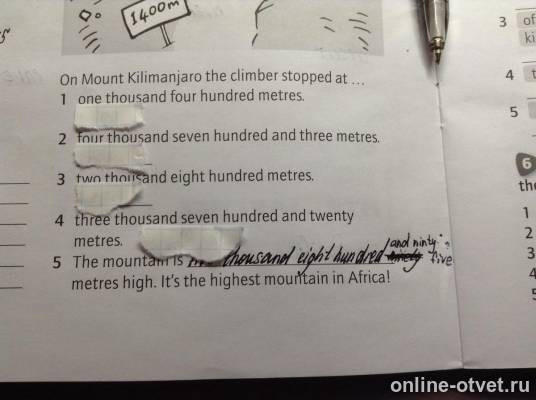 1400m
3 of
ki
On Mount Kilimanjaro the climber stopped at ...
4 t
1 one thousand four hundred metres.
5
2 four thousand seven hundred and three metres.
6
3 two thousand eight hundred metres.
the
4 three thousand seven hundred and twenty
metres.
1
2
5 The mountain is thousand eight hundred and ninty five
3
metres high. It's the highest mountain in Africa!
4
5
online-otvet.ru